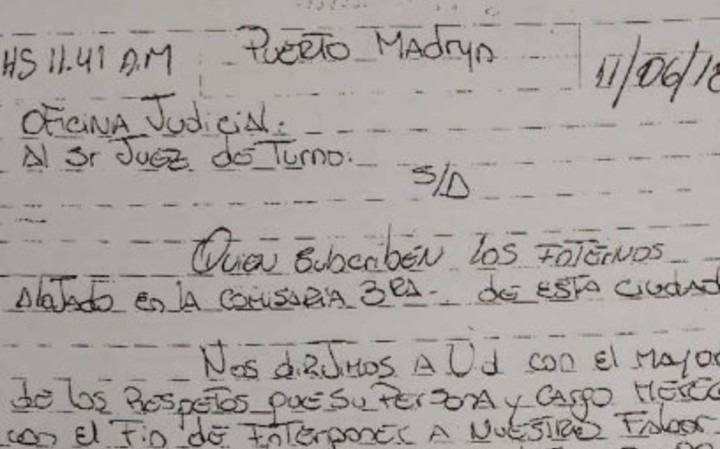 HS 11.41 A.M Puerto Madryn 11/06/18
Oficina Judicial:
Al Sr Juez de Turno:
S/D
Quien Subscriben los Internos
Alojado en la Comisaria 3RA- de esta Ciudad
Nos dirijimos A Ud con el Mayor
de los Respetos que Su Persona y Cargo Merece
con el Fin de Interponer A Nuestro Favor